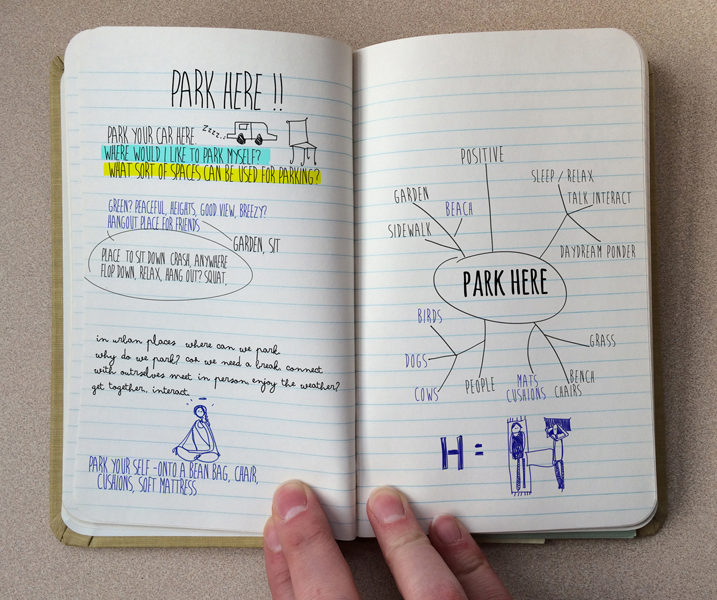 PARK HERE !!
PARK YOUR CAR HERE
zzzz...
WHERE WOULD I LIKE TO PARK MYSELF?
WHAT SORT OF SPACES CAN BE USED FOR PARKING?
GREEN? PEACEFUL, HEIGHTS, GOOD VIEW, BREEZY?
HANGOUT PLACE FOR FRIENDS
GARDEN, SIT
PLACE TO SIT DOWN CRASH, ANYWHERE
FLOP DOWN, RELAX, HANG OUT? SQUAT,
in urban places where can we park
why do we park? coz we need a break, connect
with ourselves meet in person, enjoy the weather?
get together, interact
PARK YOUR SELF -ONTO A BEAN BAG, CHAIR,
CUSHIONS, SOFT MATTRESS
POSITIVE
SLEEP / RELAX
TALK INTERACT
DAYDREAM PONDER
GARDEN
BEACH
SIDEWALK
PARK HERE
BIRDS
DOGS
COWS
PEOPLE
MATS
CUSHIONS
BENCH
CHAIRS
GRASS
H =